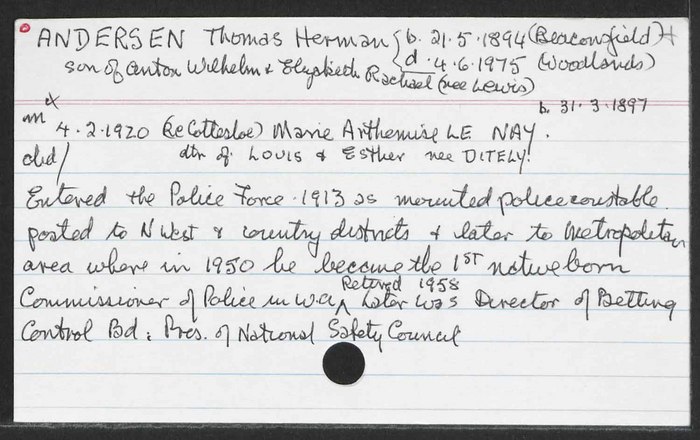 ANDERSEN Thomas Herman { b. 21.5.1894 (Beaconsfield) +
d. 4.6.1975 (Woodlands)
son of Anton Wilhelm & Elizabeth Rachael (nee Lewis)
b. 31.3.1897
m x 4.2.1920 (RC Cottesloe) Marie Arthemise LE NAY.
chd/ dtr of LOUIS & Esther nee DITELY!
Entered the Police Force 1913 as mounted police constable.
posted to N West & country districts & later to metropolitan
area where in 1950 he became the 1ST native born
Retired 1958
Commissioner of Police in W.A. ^ Later was Director of Betting
Control Bd; Pres. of National Safety Council